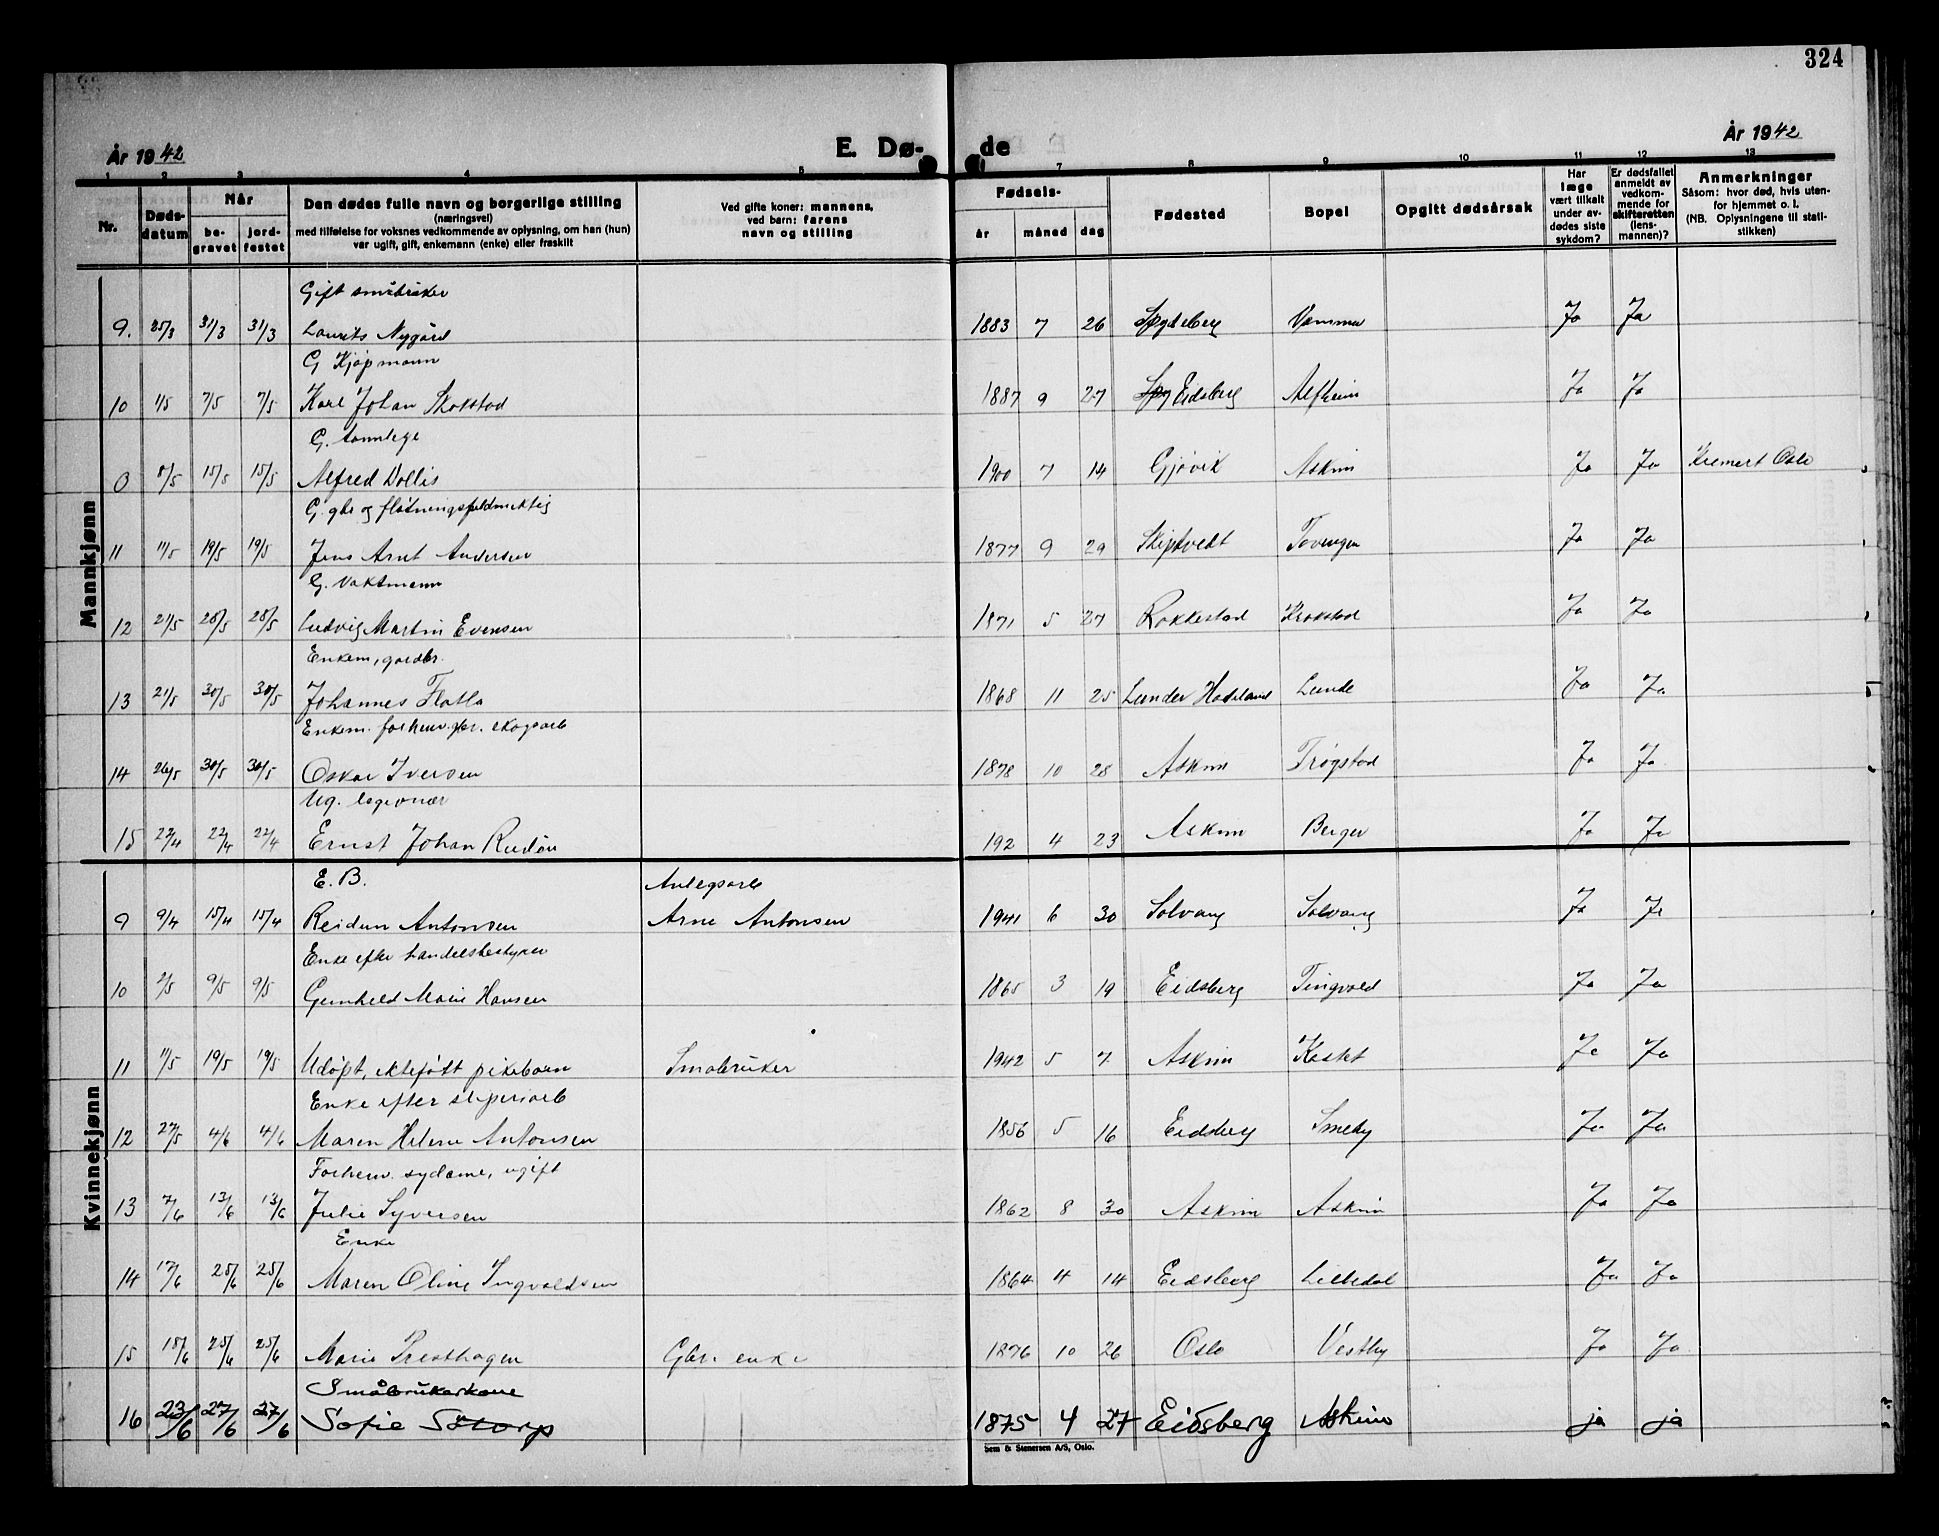 324
År 1942
E. Dø-
de
År 1942
1 2 3 4 5 7 8 9 10 11 12 13
Nr.
Døds-
datum
Når
be-
gravet
jord-
festet
Den dødes fulle navn og borgerlige stilling
(næringsvei)
med tilføielse for voksnes vedkommende av oplysning, om han (hun)
var ugift, gift, enkemann (enke) eller fraskilt
Ved gifte koner: mannens,
ved barn: farens
navn og stilling
Fødsels-
år måned dag
Fødested
Bopel
Opgitt dødsårsak
Har
læge
vært tilkalt
under av-
dødes siste
sykdom?
Er dødsfallet
anmeldt av
vedkom-
mende for
skifteretten
(lens-
mannen)?
Anmerkninger
Såsom: hvor død, hvis uten-
for hjemmet o. l.
(NB. Oplysningene til stati-
stikken)
Mannkjønn
Gift småbruker
9. 25/3 31/3 31/3 Laurits Nygård 1883 7 26 Spydeberg Vamma Ja Ja
G Kjøpmann
10 1/5 7/5 7/5 Karl Johan Skokstad 1887 9 27 Spy Eidsberg Alfheim Ja Ja
G. tannlege
0 8/5 15/5 15/5 Alfred Dollis 1900 7 14 Gjøvik Askim Ja Ja Kremert Oslo
G. gbr og fløtningsfuldmektig
11 11/5 19/5 19/5 Jens Arnt Andersen 1877 9 29 Skiptvedt Tovengen Ja Ja
G. Vaktmann
12 21/5 28/5 28/5 Ludvig Martin Evensen 1871 5 27 Rakkestad Krokstad Ja Ja
Enkem, gardbr.
13 21/5 30/5 30/5 Johannes Flatla 1868 11 25 Lunder Hadeland Lunde Ja Ja
Enkem. forhenv. gbr. skogsarb
14 26/5 30/5 30/5 Oskar Iversen 1878 10 28 Askim Trøgstad Ja Ja
Ug. legionær
15 22/4 22/4 Ernst Johan Rudön 192 4 23 Askim Berger Ja Ja
Kvinnekjønn
E. B. Anlegsarb
9 9/4 15/4 15/4 Reidun Antonsen Arne Antonsen 1941 6 30 Solvang Solvang Ja Ja
Enke efter handelsbestyrer
10 2/5 9/5 9/5 Gunhild Marie Hansen 1865 3 19 Eidsberg Tingvold Ja Ja
11 11/5 19/5 19/5 Udøpt, ektefött pikebarn Smabruker 1942 5 7 Askim Kastet Ja Ja
Enke efter sliperiarb
12 27/5 4/6 4/6 Maren Helene Antonsen 1856 5 16 Eidsberg Smeby Ja Ja
Forhenv. sydame, ugift
13 7/6 13/6 13/6 Julie Syversen 1862 8 30 Askim Askim Ja Ja
Enke
14 17/6 25/6 25/6 Maren Oline Ingvaldsen 1864 4 14 Eidsberg Lilledal Ja Ja
15 18/6 25/6 25/6 Marie Presthagen Gbr. enke 1876 10 26 Oslo Vestby Ja Ja
Småbrukerkone
16 23/6 27/6 27/6 Sofie Sötorp 1875 4 27 Eidsberg Askim ja ja
Sem & Stenersen A/S, Oslo.